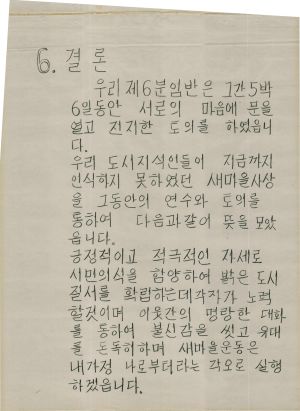 6. 결론
우리 제6분임반은 그간 5박
6일동안 서로의 마음에 문을
열고 진지한 토의를 하였읍니
다.
우리 도시지식인들이 지금까지
인식하지 못하였던 새마을사상
을 그동안의 연수와 토의를
통하여 다음과같이 뜻을 모았
읍니다.
긍정적이고 적극적인 자세로
서민의식을 함양하여 밝은 도시
질서를 확립하는데 각자가 노력
할것이며 이웃간의 명랑한 대화
를 통하여 불신감을 씻고 유대
를 돈독히하며 새마을운동은
내가정 나로부터라는 각오로 실행
하겠읍니다.